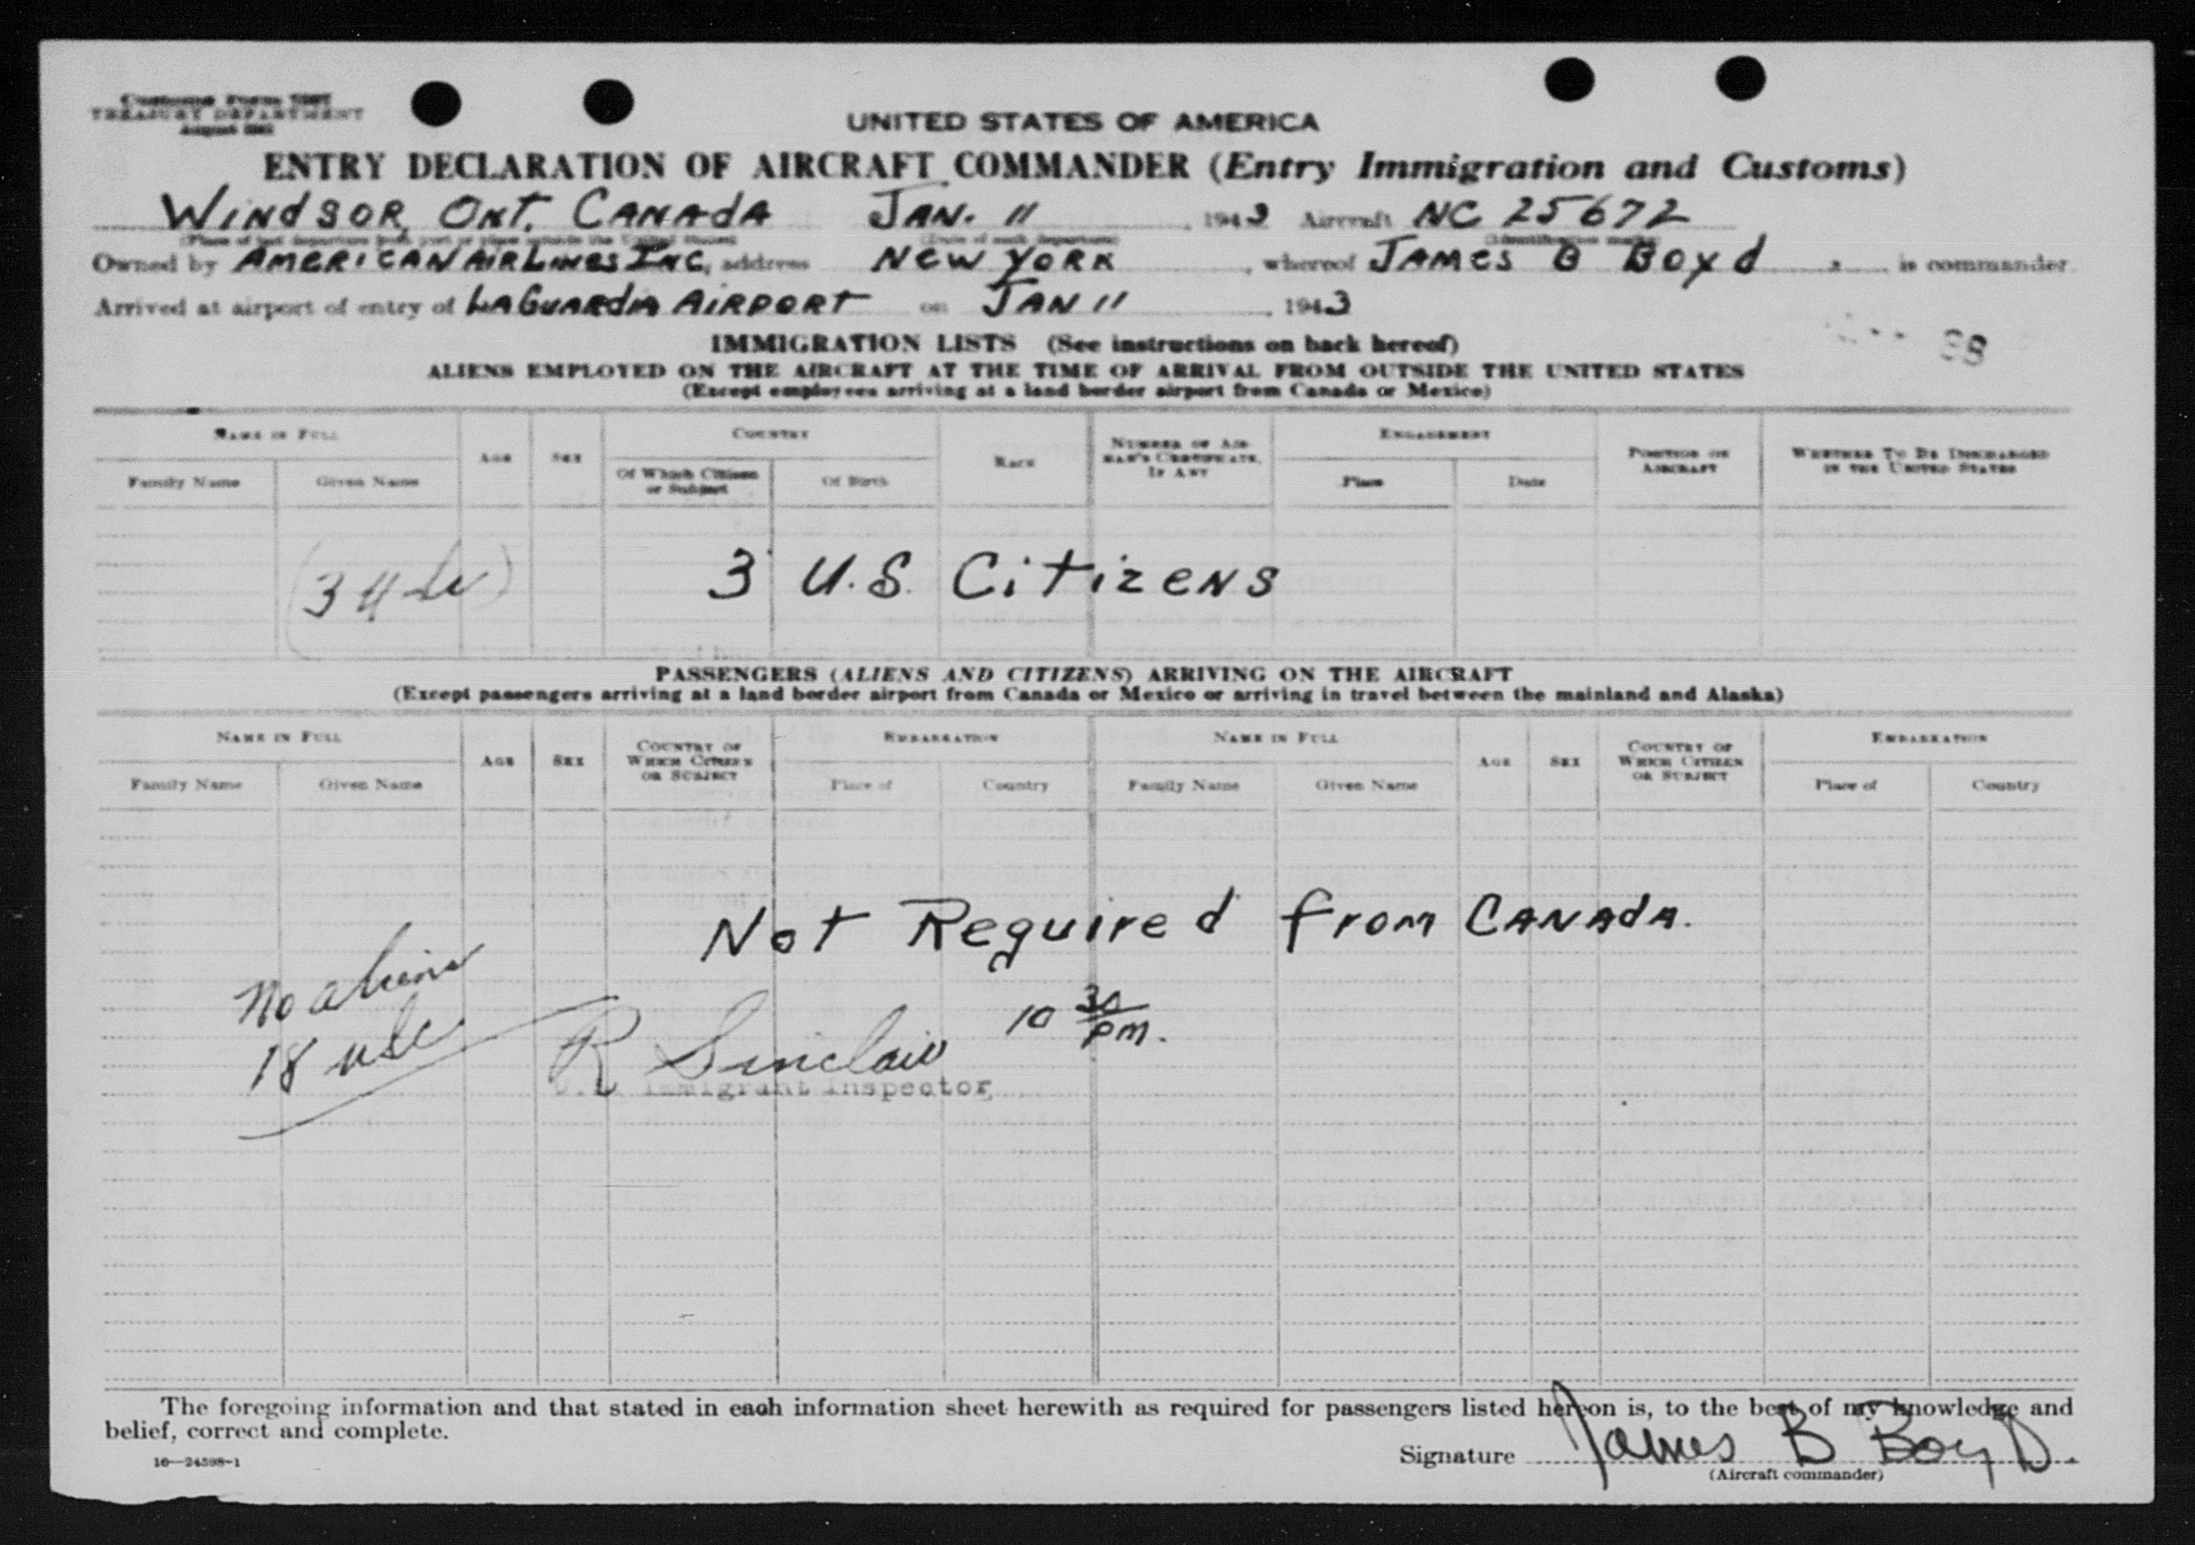 Customs Form 5507
TREASURY DEPARTMENT
August 1941
UNITED STATES OF AMERICA
ENTRY DECLARATION OF AIRCRAFT COMMANDER (Entry Immigration and Customs)
WINDSOR, ONT. CANADA JAN. 11, 1943 Aircraft NC 25672
(Place of last departure from port or place outside the United States) (Date of such departure) (Identification marks)
Owned by AMERICAN AIRLINES INC, address NEW YORK, whereof JAMES B BOYd, is commander
Arrived at airport of entry of LAGUARDIA AIRPORT on JAN 11, 1943
IMMIGRATION LISTS (See instructions on back hereof)
88
ALIENS EMPLOYED ON THE AIRCRAFT AT THE TIME OF ARRIVAL FROM OUTSIDE THE UNITED STATES
(Except employees arriving at a land border airport from Canada or Mexico)
NAME IN FULL AGE SEX COUNTRY RACE NUMBER OF AIRMAN'S CERTIFICATE, IF ANY ENGAGEMENT POSITION ON AIRCRAFT WHETHER TO BE DISCHARGED IN THE UNITED STATES
Family Name Given Name Of Which Citizen or Subject Of Birth Place Date
3 U.S. Citizens
PASSENGERS (ALIENS AND CITIZENS) ARRIVING ON THE AIRCRAFT
(Except passengers arriving at a land border airport from Canada or Mexico or arriving in travel between the mainland and Alaska)
NAME IN FULL AGE SEX COUNTRY OF WHICH CITIZEN OR SUBJECT EMBARKATION NAME IN FULL AGE SEX COUNTRY OF WHICH CITIZEN OR SUBJECT EMBARKATION
Family Name Given Name Place of Country Family Name Given Name Place of Country
Not Required from CANADA.
No aliens
18 usc
R Sinclair 10 30 pm.
Immigrant Inspector
The foregoing information and that stated in each information sheet herewith as required for passengers listed hereon is, to the best of my knowledge and
belief, correct and complete.
Signature James B Boyd.
(Aircraft commander)
16—24598-1